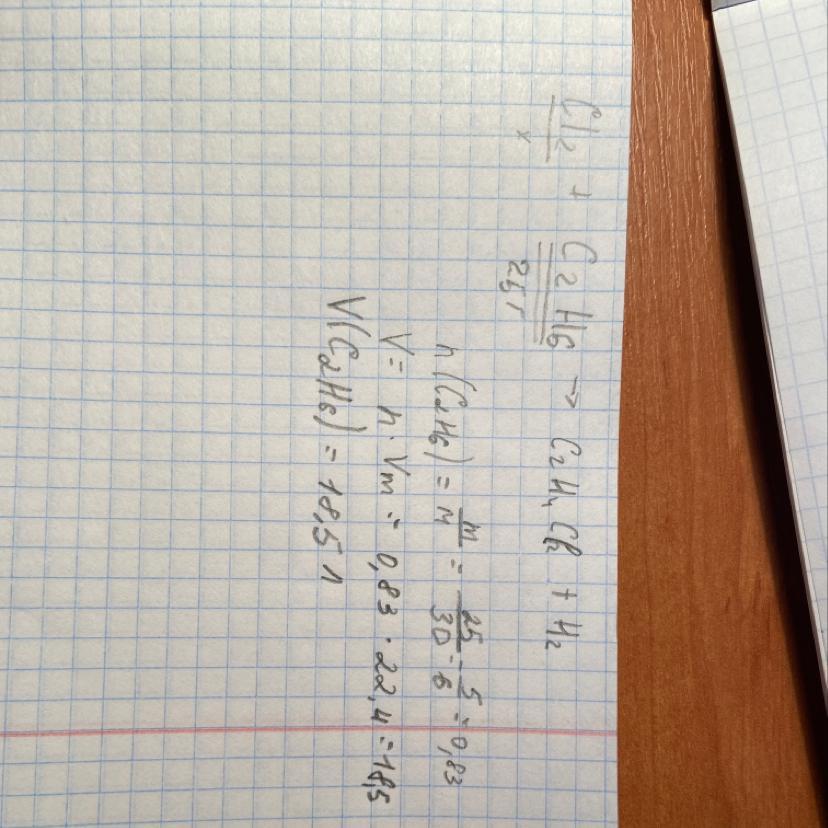 Cl2 + C2H6 → C2H4Cl2 + H2
x 25г
n(C2H6) = m/M = 25/30 = 5/6 = 0,83
V = n · Vm = 0,83 · 22,4 = 18,5
V(C2H6) = 18,5 л